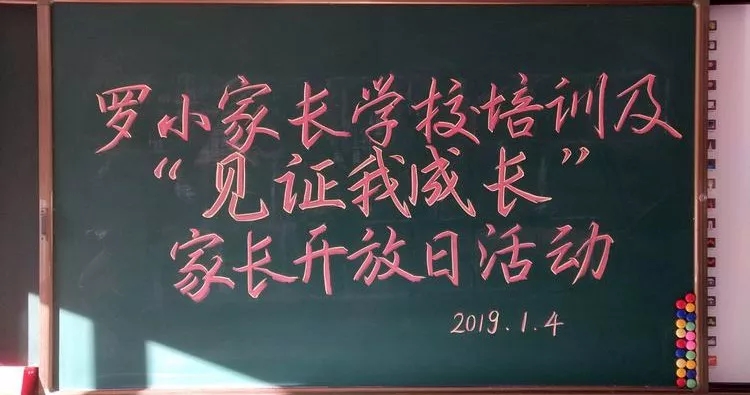 罗小家长学校培训及
“见证我成长”
家长开放日活动
2019.1.4